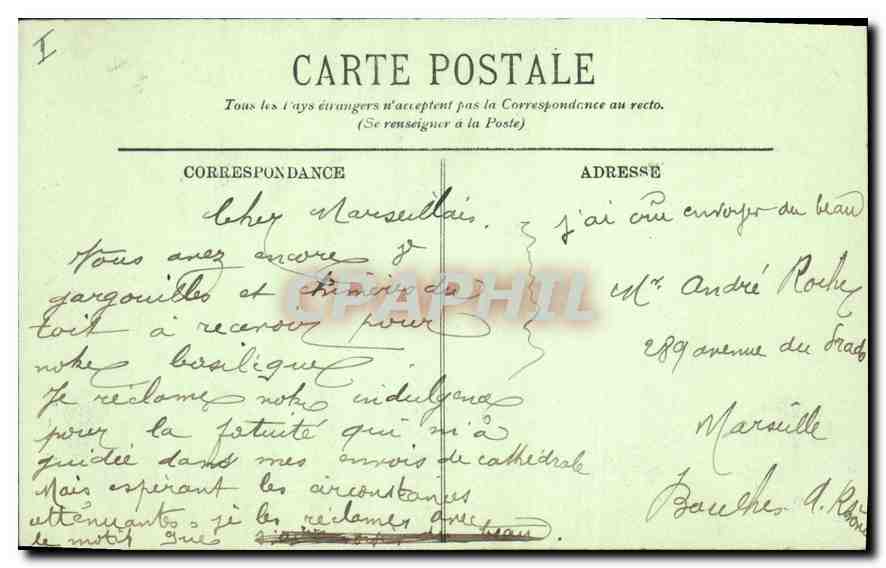 I
CARTE POSTALE
Tous les Pays étrangers n'acceptent pas la Correspondance au recto.
(Se renseigner à la Poste)
CORRESPONDANCE
Cher Marseillais.
Vous avez encore
gargouilles et chimères du
toit à recevoir pour
notre basilique
Je réclame notre indulgence
pour la fatuité qui m'a
guidée dans mes envois de cathédrale
Mais espérant les circonstances
atténuantes, je les réclame avec
le motif que
j'ai cru envoyer du beau
ADRESSE
Mr. André Roche
289 avenue du Prado
Marseille
Bouches d. Rhône
CPAPHIL